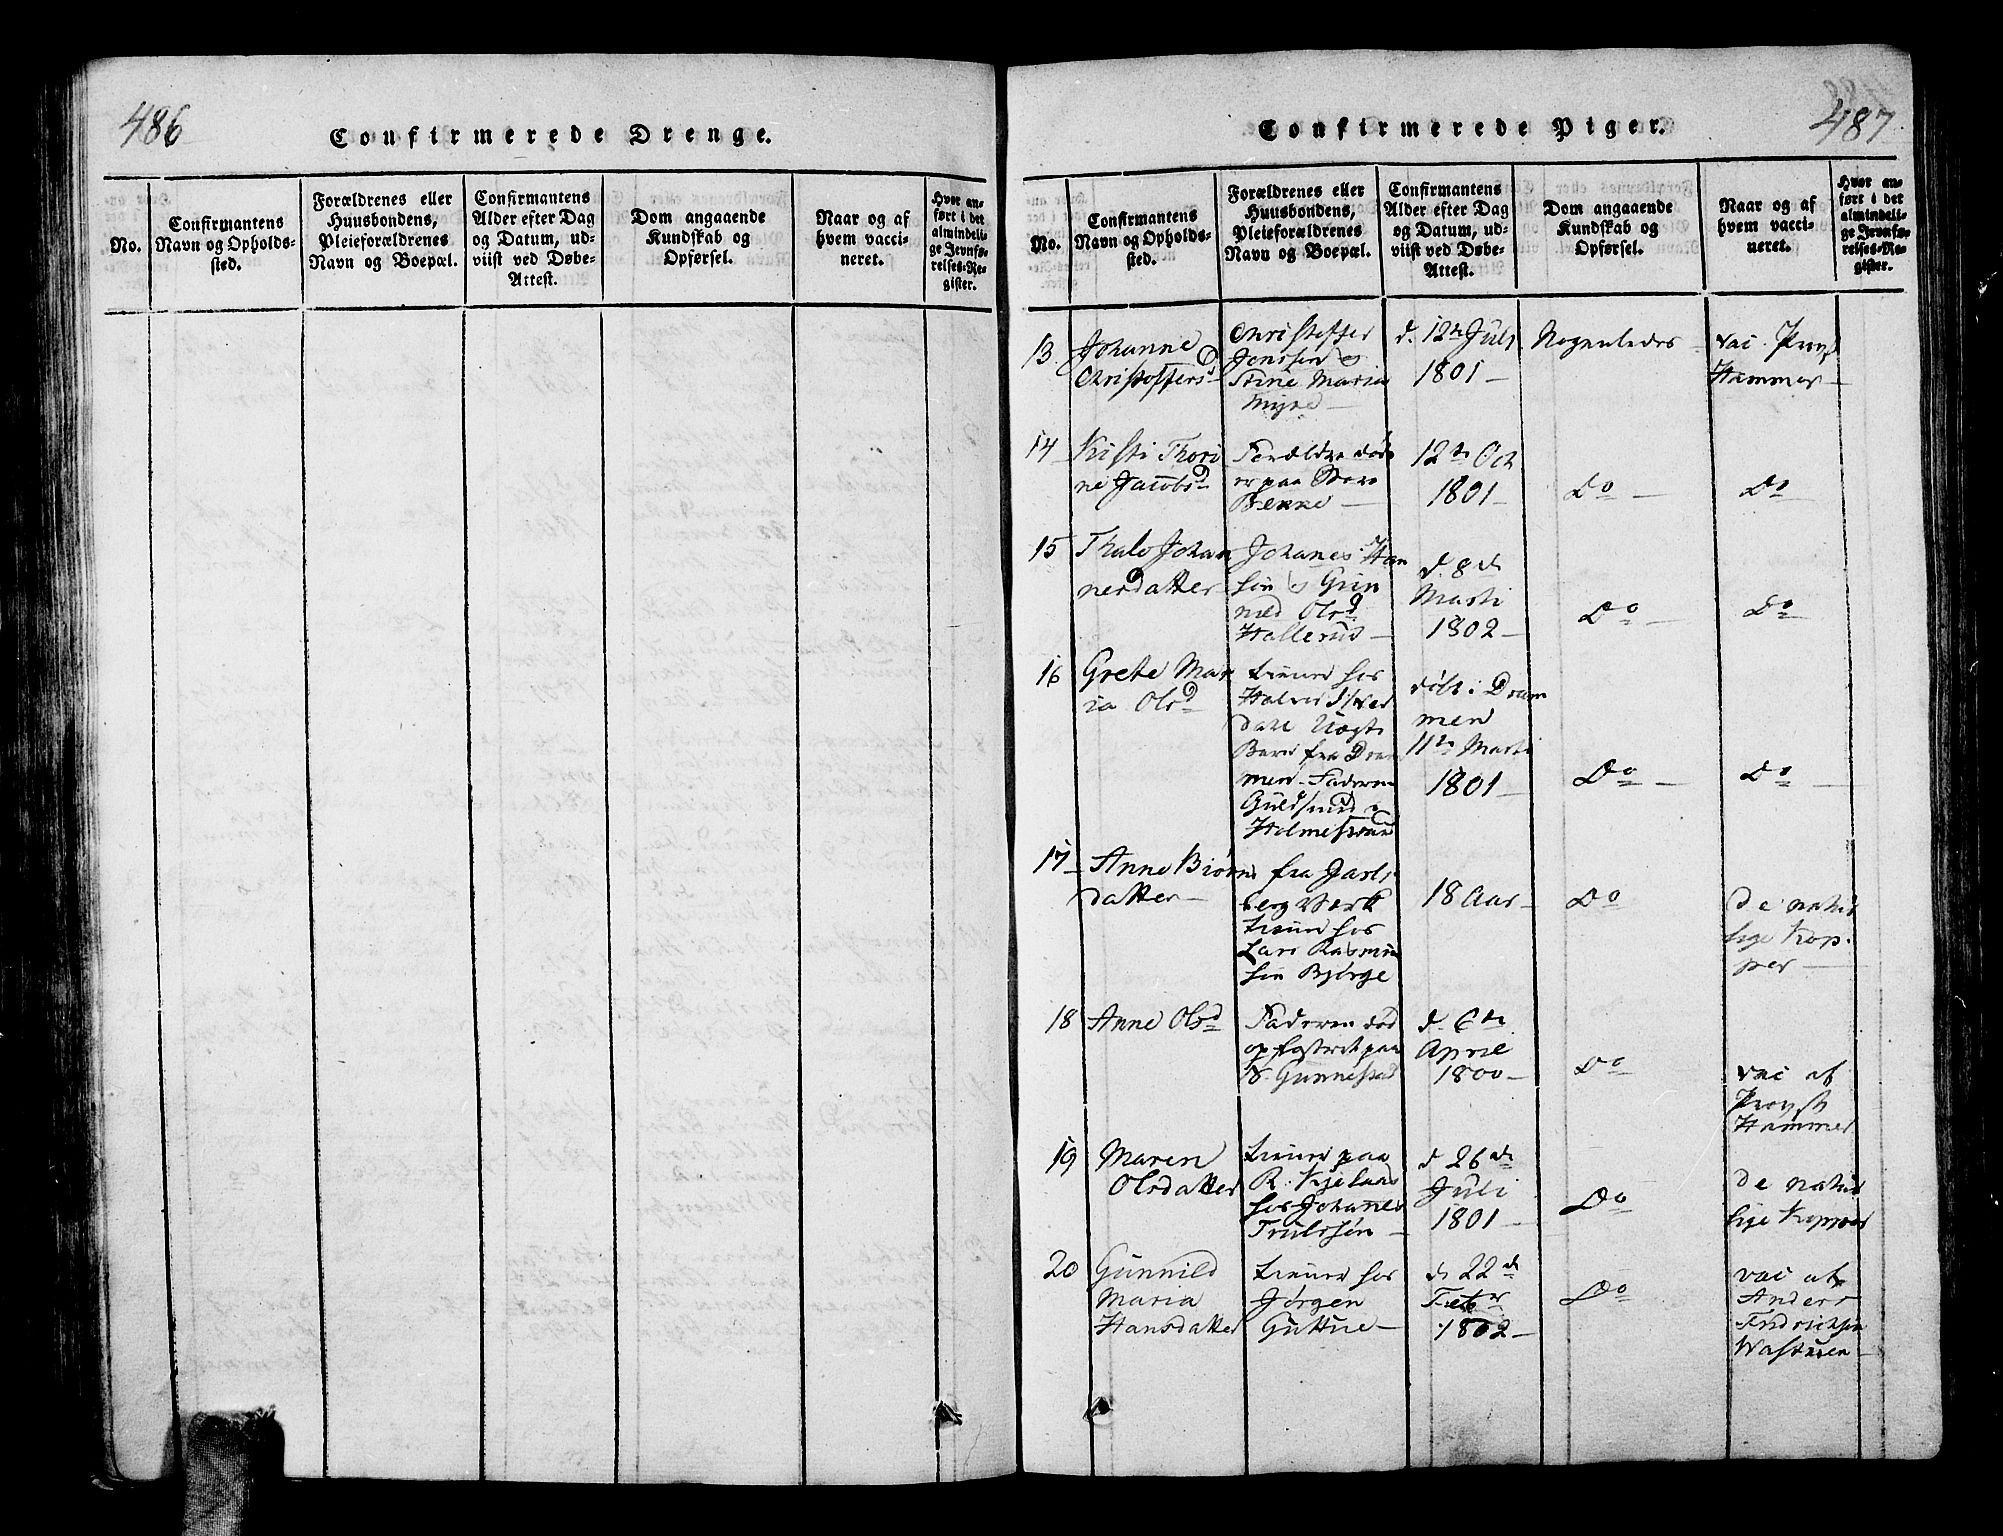 486
Confirmerede Drenge.
No.
Confirmantens
Navn og Opholds-
sted.
Forældrenes eller
Huusbondens,
Pleieforældrenes
Navn og Boepæl.
Confirmantens
Alder efter Dag
og Datum, ud-
viist ved Døbe-
Attest.
Dom angaaende
Kundskab og
Opførsel.
Naar og af
hvem vacci-
neret.
Hvor an-
ført i det
almindeli-
ge Jevnfø-
relses-Re-
gister.
487
Confirmerede Piger.
No.
Confirmantens
Navn og Opholds-
sted.
Forældrenes eller
Huusbondens,
Pleieforældrenes
Navn og Boepæl.
Confirmantens
Alder efter Dag
og Datum, ud-
viist ved Døbe-
Attest.
Dom angaaende
Kundskab og
Opførsel.
Naar og af
hvem vacci-
neret.
Hvor an-
ført i det
almindeli-
ge Jevnfø-
relses-Re-
gister.
13.
Johanne
Christoffersd
Christoffer
Jenssen og
Stine Maria
Myre
d. 12te July
1801
Nogenledes
vac. Provst
Hammer
14
Kisti Thori
ne Jacobsd
Forældre døde
er paa
1801
12te Oct
Do
Do
15
Johan
nesdatter
Johanes Han
søn og Gun
nild Olsd
Hallerud
d. 8de
Marti
1802
Do
Do
16
Grete Mar
ia Olsd
tiener hos
Halvor
Barn fra Dram
men Faderen
Guldsmed i
Holmestrand
døbt i Dram
men
11te Marti
1801
Do
Do
17
Anne Biørns
datter
fra Jarls
berg Værk
tiener hos
Lars Rasmus
søn Bjørge
18 Aar
Do
De natur
lige Kop
per
18
Anne Olsd
Faderen død
opfostret paa
N. Gunnestad
d. 6te
April
1800
Do
vac af
Provst
Hammer
19
Maren
Olsdatter
tiener paa
hos Johanes
Trulssøn
d 26de
Juli
1801
Do
De natur
lige Kopper
20
Gunnild
Maria
Hansdatter
tiener hos
Jørgen
d. 22de
Febr
1802
Do
vac af
Anders
Fridrichsen